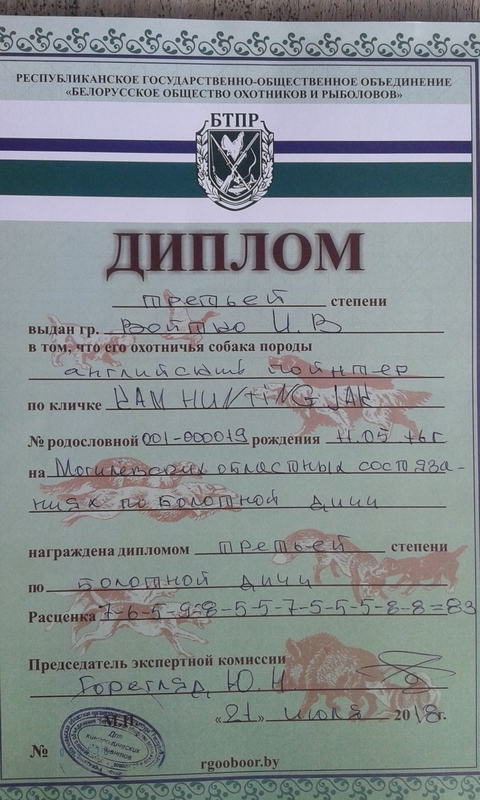 РЕСПУБЛИКАНСКОЕ ГОСУДАРСТВЕННО-ОБЩЕСТВЕННОЕ ОБЪЕДИНЕНИЕ
«БЕЛОРУССКОЕ ОБЩЕСТВО ОХОТНИКОВ И РЫБОЛОВОВ»
БТПР
ДИПЛОМ
третьей степени
выдан гр. Войтко И.В
в том, что его охотничья собака породы
английский пойнтер
по кличке RAM HUNTING JAK
№ родословной 001-000019 рождения 11.05 16г
на Могилевских областных состяза-
ниях по болотной дичи
награждена дипломом третьей степени
по болотной дичи
Расценка 7-6-5-9-8-5-5-7-5-5-5-8-8=83
Председатель экспертной комиссии
Горегляд Ю.И
М.П.
«21» июля 2018г.
Для
кинологических
документов
№
rgooboor.by